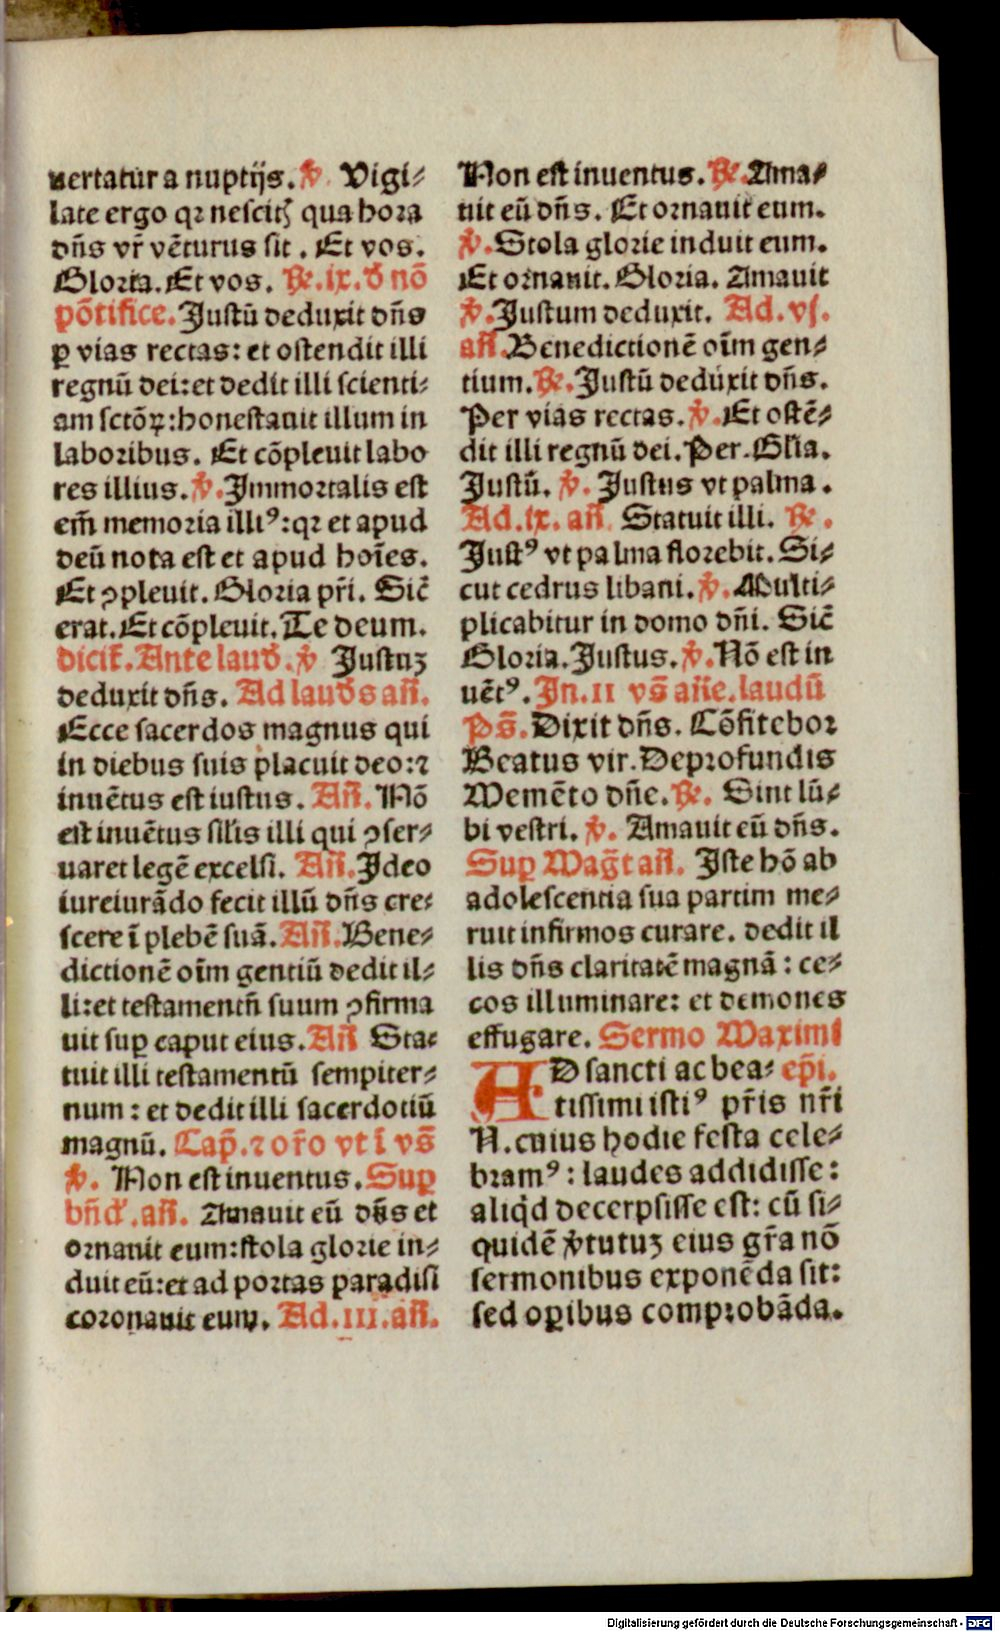 uertatur a nuptijs. ℣. Vigi⸗
late ergo qꝛ nescitꝭ qua hora
dn̄s vr̄ vēturus sit. Et vos.
Gloria. Et vos. ℟. ix. ꝺ̄ nō
pōtifice. Justū deduxit dn̄s
ꝑ vias rectas: et ostendit illi
regnū dei: et dedit illi scienti⸗
am sctōꝝ: honestauit illum in
laboribus. Et cōpleuit labo
res illius. ℣. Jmmortalis est
em̄ memoria illiꝰ: qꝛ et apud
deū nota est et apud hoīes.
Et ꝯpleuit. Gloria pr̄i. Sic̄
erat. Et cōpleuit. Te deum.
dicit̄. Ante laud̄. ℣ Justuꝫ
deduxit dn̄s. Ad laud̄s an̄.
Ecce sacerdos magnus qui
in diebus suis placuit deo: ⁊
inuētus est iustus. An̄. Nō
est inuētus sil̄is illi qui ꝯser⸗
uaret legē excelsi. An̄. Jdeo
iureiurādo fecit illū dn̄s cre⸗
scere ī plebē suā. An̄. Bene⸗
dictionē oīm gentiū dedit il⸗
li: et testamentū suum ꝯfirma
uit suꝑ caput eius. An̄ Sta⸗
tuit illi testamentū sempiter⸗
num: et dedit illi sacerdotiū
magnū. Cap̄. ⁊ or̄o vt ī vs̄
℣. Non est inuentus. Suꝑ
bn̄d̄. an̄. Amauit eū dn̄s et
ornauit eum: stola glorie in⸗
duit eū: et ad portas paradisi
coronauit eum. Ad. III. an̄.
Non est inuentus. ℟. Ama⸗
uit eū dn̄s. Et ornauit eum.
℣. Stola glorie induit eum.
Et ornauit. Gloria. Amauit
℣. Justum deduxit. Ad. vj.
an̄. Benedictionē oīm gen⸗
tium. ℟. Justū deduxit dn̄s.
Per vias rectas. ℣. Et ostē⸗
dit illi regnū dei. Per. Gl̄ia.
Justū. ℣. Justus vt palma.
Ad. ix. an̄. Statuit illi. ℟.
Justꝰ vt palma florebit. Si⸗
cut cedrus libani. ℣. Multi⸗
plicabitur in domo dn̄i. Sic̄
Gloria. Justus. ℣. Nō est in
uētꝰ. Jn. II vs̄ an̄e. laudū
Ps̄. Dixit dn̄s. Cōfitebor
Beatus vir. Deprofundis
Memēto dn̄e. ℟. Sint lū⸗
bi vestri. ℣. Amauit eū dn̄s.
Suꝑ Maḡt an̄. Jste hō ab
adolescentia sua partim me⸗
ruit infirmos curare. dedit il
lis dn̄s claritatē magnā: ce⸗
cos illuminare: et demones
effugare. Sermo Maximi
AD sancti ac bea⸗ ep̄i.
tissimi istiꝰ pr̄is nr̄i
N. cuius hodie festa cele⸗
bramꝰ: laudes addidisse:
aliq̇d decerpsisse est: cū si⸗
quidē v̓tutuꝫ eius gr̄a nō
sermonibus exponēda sit:
sed oꝑibus comprobāda.
Digitalisierung gefördert durch die Deutsche Forschungsgemeinschaft - DFG